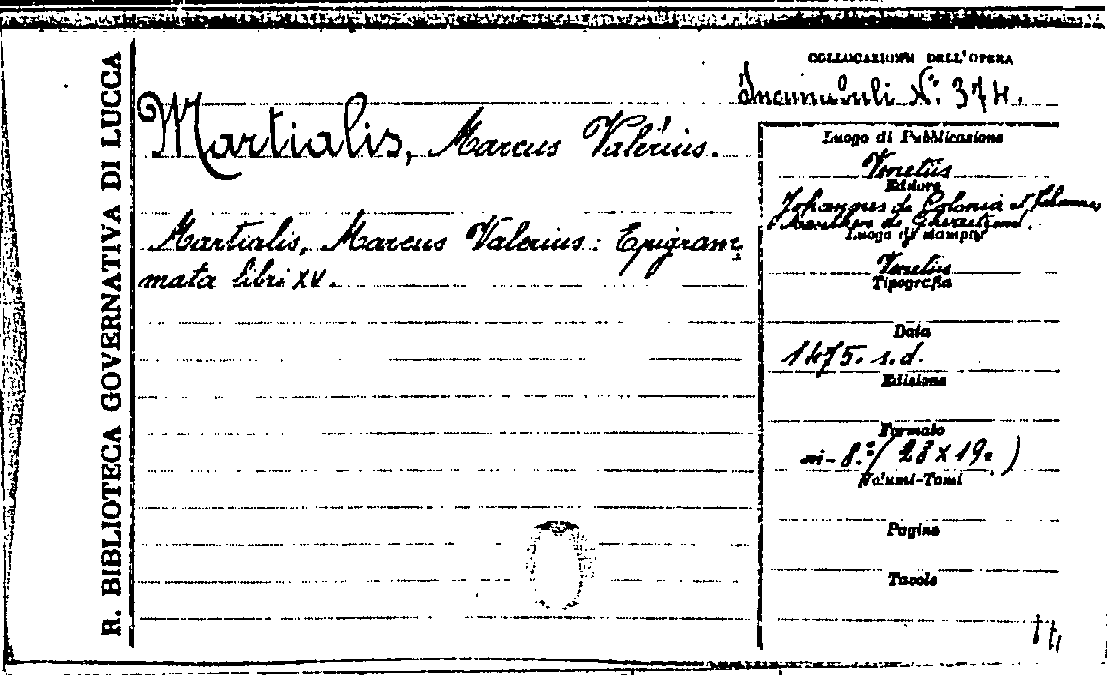 R. BIBLIOTECA GOVERNATIVA DI LUCCA
COLLOCAZIONE DELL'OPERA
Incunabuli N.° 374.
Martialis, Marcus Valerius.
Martialis, Marcus Valerius: Epigram=
mata libri XV.
Luogo di Pubblicazione
Venetiis
Editore
Johannes de Colonia et Johannes
de
Luogo di stampa
Venetiis
Tipografia
Data
1475. s.d.
Edizione
Formato
in-8.° (28 x 19.)
Volumi-Tomi
Pagine
Tavole